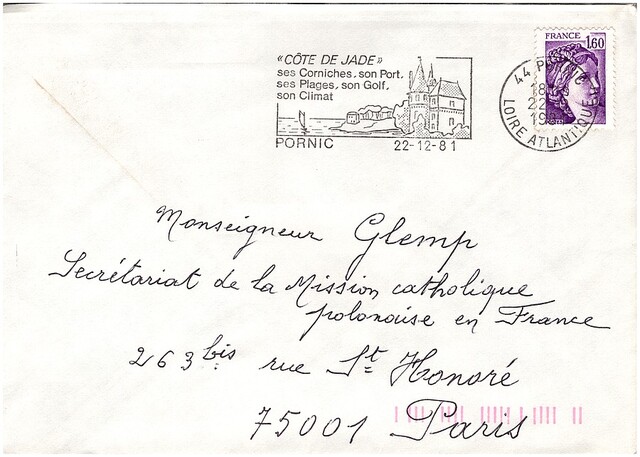 «CÔTE DE JADE»
ses Corniches, son Port,
ses Plages, son Golf,
son Climat
PORNIC 22-12-81
FRANCE
1,60
44 P
18
22
19
LOIRE ATLANTIQUE
Monseigneur Glemp
Secrétariat de la Mission catholique
polonaise en France
263 bis rue St Honoré
75001 Paris